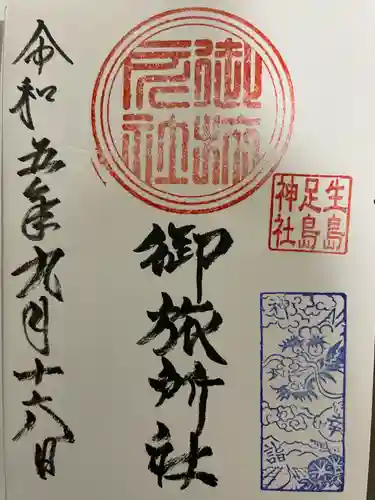 御旅所社
生島
足島
神社
御旅所社
令和五年九月十六日
幸詣